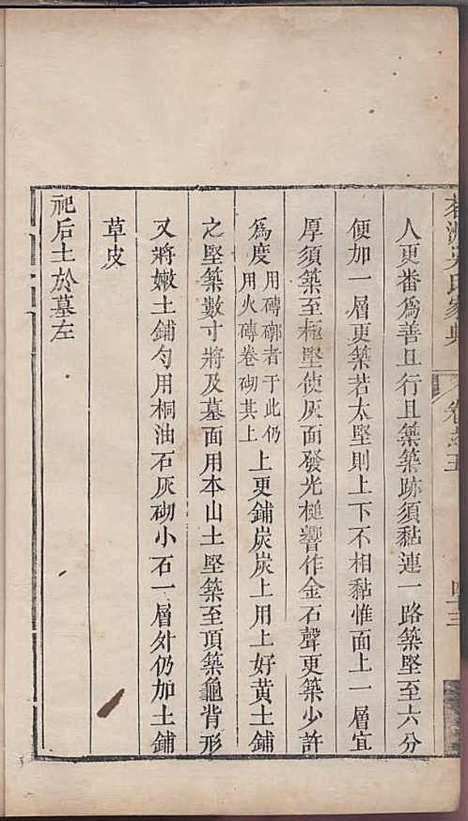 茗洲吳氏家典
卷之五
四十三
人更番爲善且行且築築跡須黏連一路築堅至六分
便加一層更築若太堅則上下不相黏惟面上一層宜
厚須築至極堅使灰面發光槌響作金石聲更築少許
爲度用磚槨者于此仍用火磚卷砌其上上更鋪炭炭上用上好黃土鋪
之堅築數寸將及墓面用本山土堅築至頂築龜背形
又將嫩土鋪勻用桐油石灰砌小石一層外仍加土鋪
草皮
祀后土於墓左